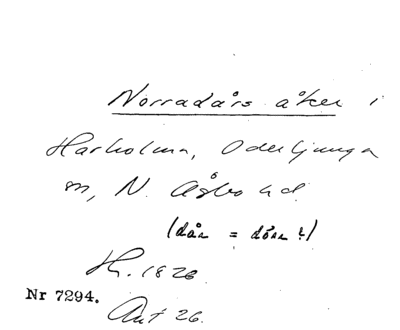 Norradårs åker i
Harholma, Oderljunga
sn, N. Åsbo hd.
(dår = dörr?)
H. 1826.
Nr 7294.
Ant 26.